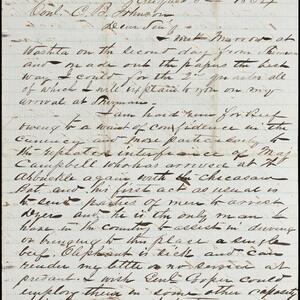 August 1864
Cont. C. B. Johnson
Dear Sir,
I met Marrow at
Washita on the second day from
and made out the papers the best
way I could for the 2nd quarter all
of which I will explain to you on my
arrival at Sherman.
I am hard run for Beef
owing to a want of confidence in the
currency and more particularly to
the interference of Maj
Campbell who has arrived at Ft
Arbuckle again with his Chicasaw
Bat and his first act as usual is
to send parties of men to arrest
Dyers and he is the only man I
have in the country to assist in driving
or bringing to this place a single
beef. is sick and can
render my little or no service at
present. I wish Genl Cooper could
employ them in some other capacity